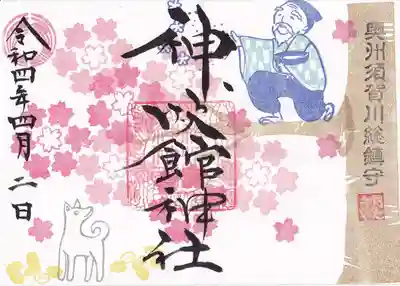 奥州須賀川総鎮守
神炊館神社
令和四年四月二日